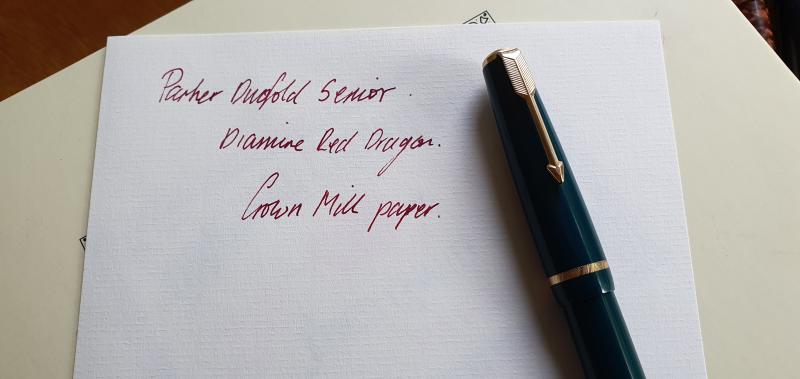 Parker Duofold Senior.
Diamine Red Dragon.
Crown Mill paper.